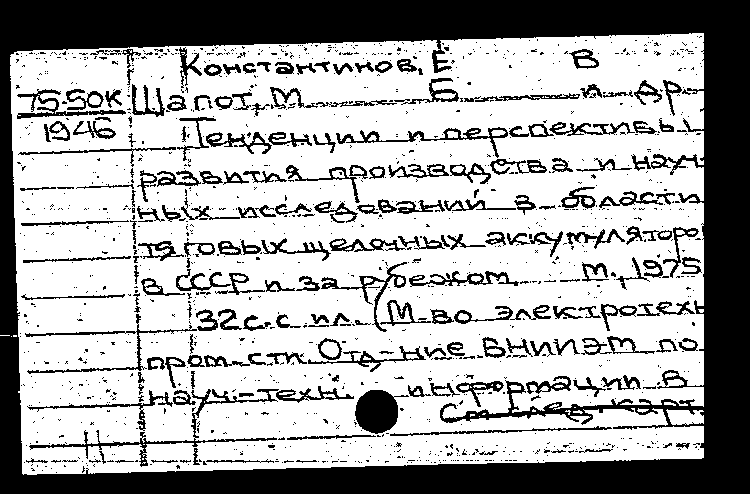 Константинов, Е В
75-50К Шапот, М Б и др
1946 Тенденции и перспективы
развития производства и науч-
ных исследований в области
тяговых щелочных аккумуляторо
в СССР и за рубежом. М., 1975
32с. с ил. (М-во электротехн
пром-сти. Отд-ние ВНИИЭМ по
науч.-техн. информации в
См след. карт.